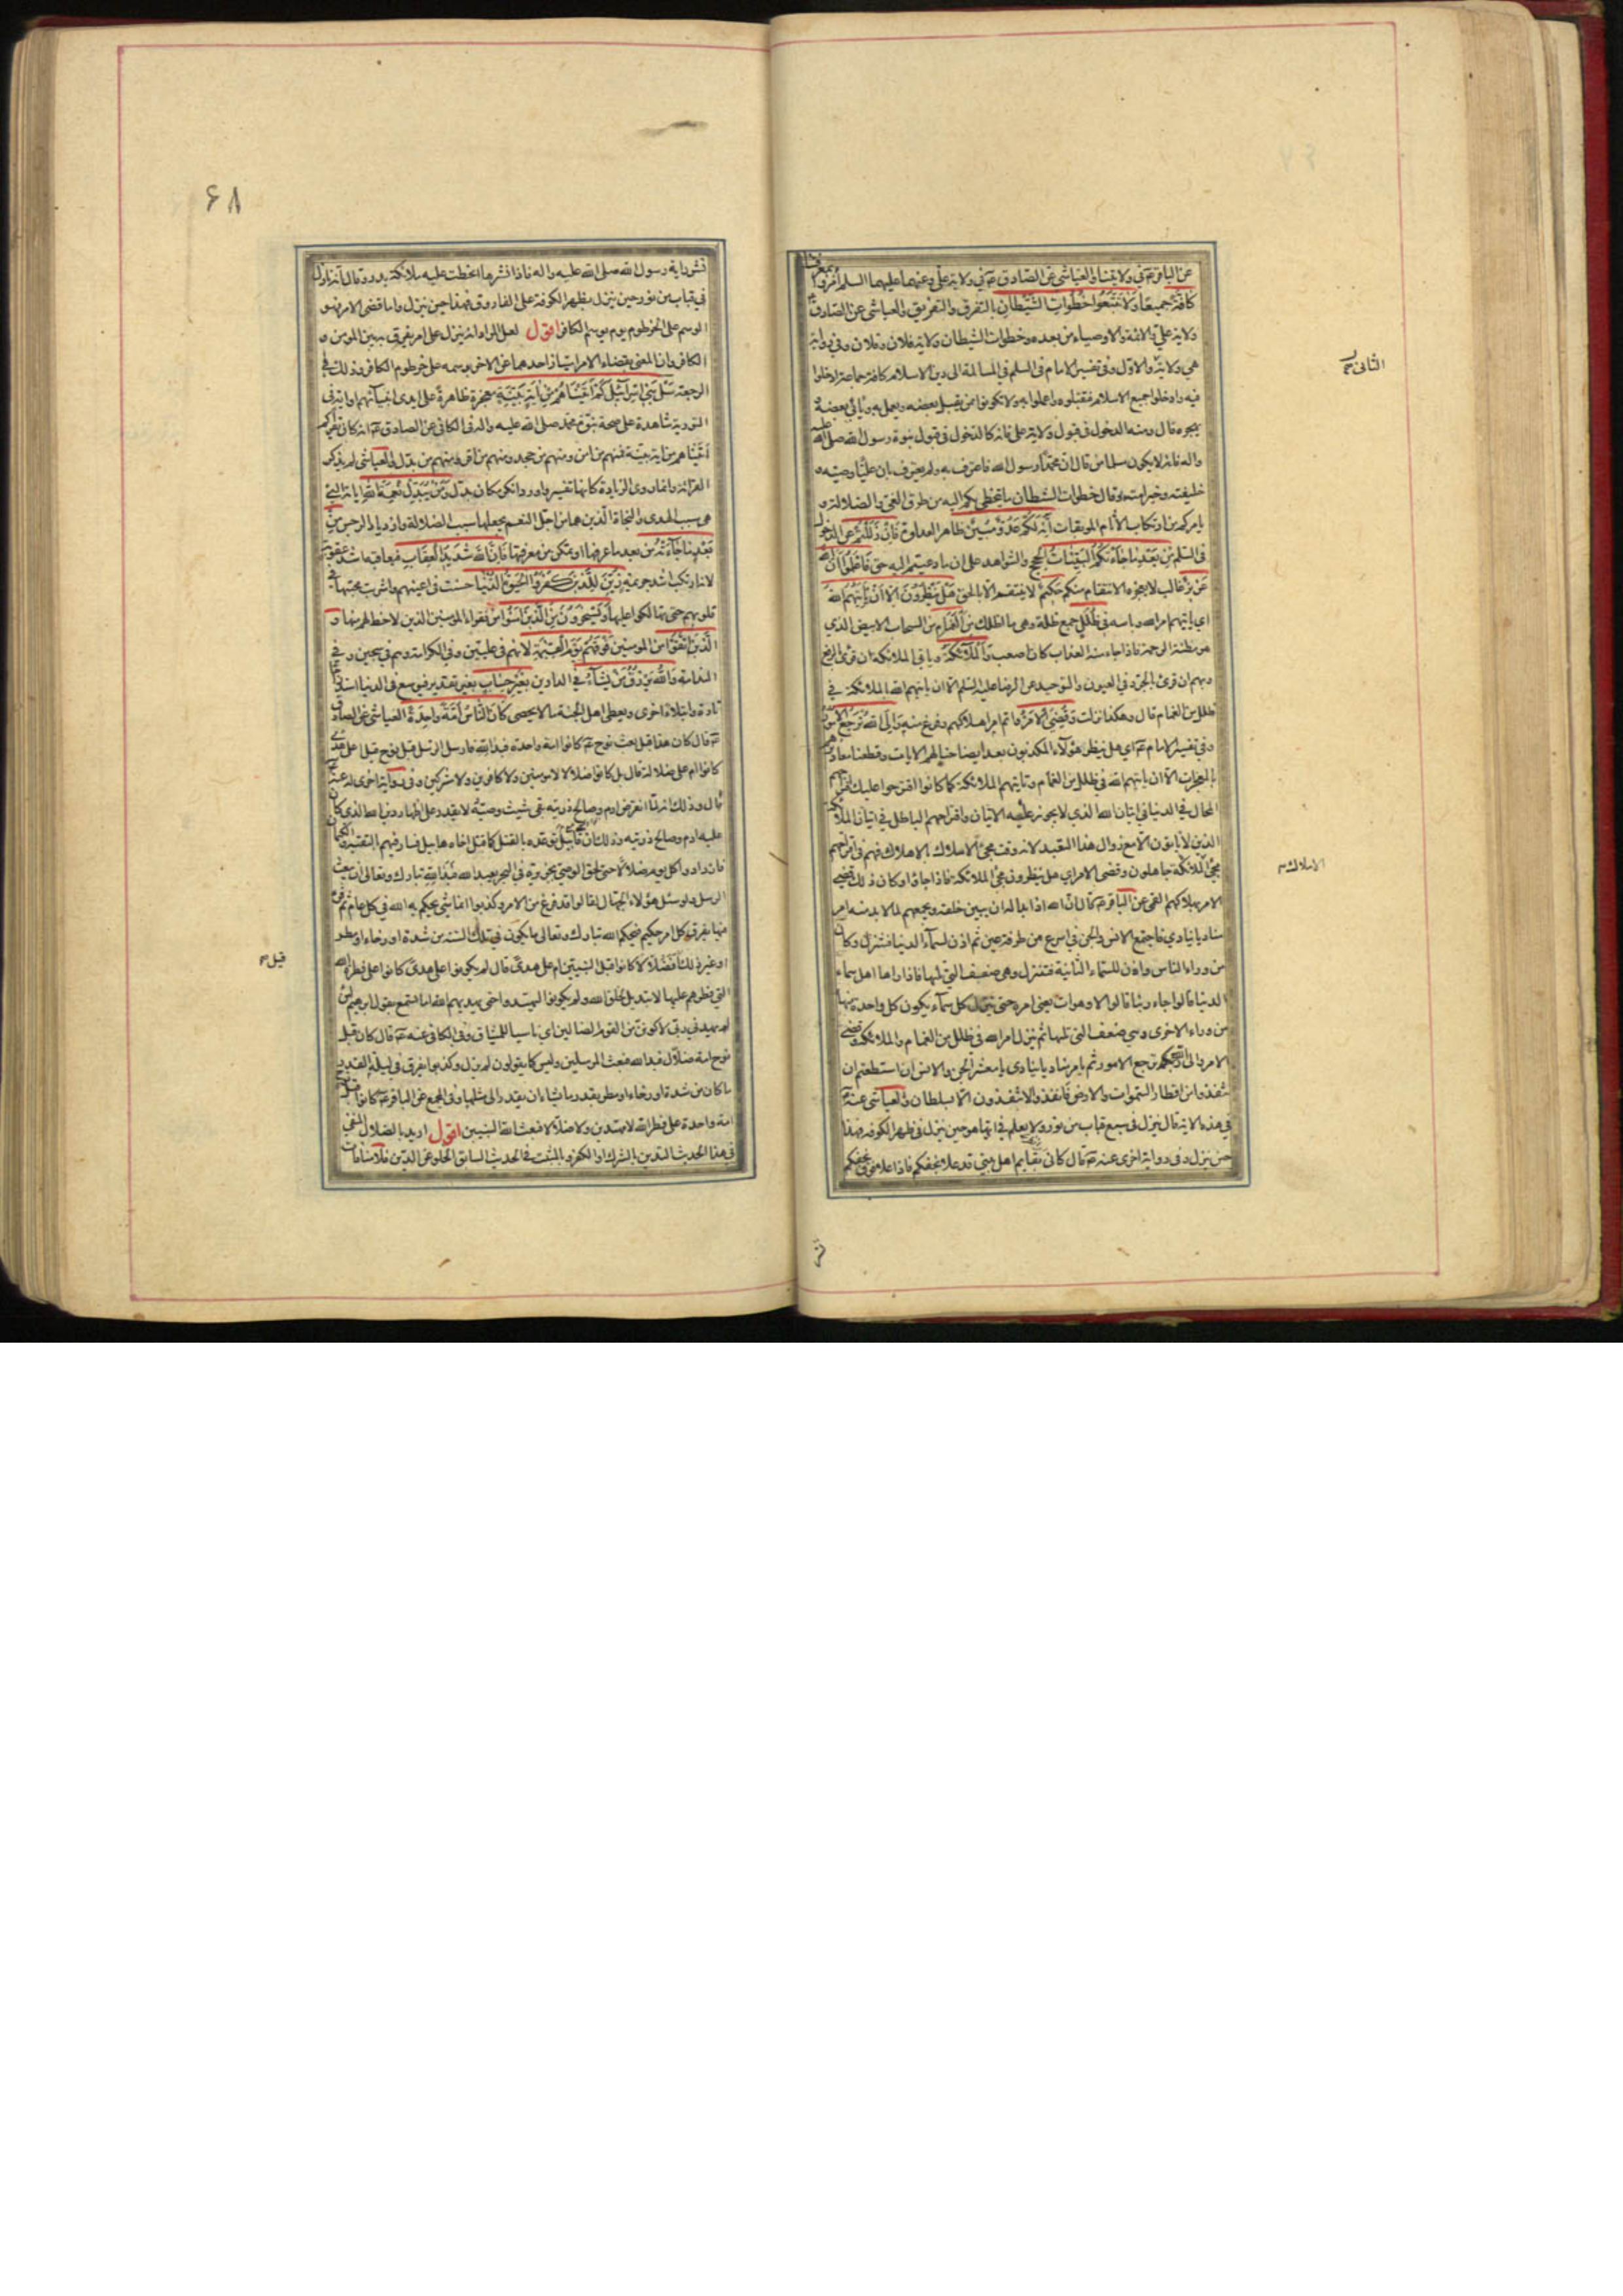 عن الباقر عم في ولايتنا والعياشي عن الصادق عم في ولاية علي وعنهما عليهما السلم امروا بمعرفتنا
كافة جميعا ولا تتبعوا خطوات الشيطان بالتفرق والتفريق والعياشي عن الصادق عم
ولاية علي والائمة والاوصياء من بعده وخطوات الشيطان ولاية فلان وفلان وفي رواية
هي ولاية والاول وفي تفسير الامام في السلم في المسالمة الى دين الاسلام كافة جماعة ادخلوا
فيه وادخلوا جميع الاسلام فتقبلوه واعملوا به ولا تكونوا ممن يقبل بعضه ويعمل به ويأبى بعضه و
يهجره قال ومنه الدخول في قبول ولاية علي فانه كالدخول في قبول نبوة رسول الله صلى الله عليه
واله فانه لا يكون مسلما من قال ان محمدا رسول الله فاعترف به ولم يعترف بان عليا وصيه و
خليفته وخير امته وقال خطوات الشيطان ما يتخطى بكم اليه من طرق الغي والضلالة و
يامركم به من ارتكاب الآثام الموبقات انه لكم عدو مبين ظاهر العداوة فان زللتم عن الدخول
في السلم من بعد ما جاءتكم البينات الحجج والشواهد على ان ما دعيتم اليه حق فاعلموا ان الله
عزيز غالب لا يعجزه الانتقام منكم حكيم لا ينتقم الا بالحق هل ينظرون الا ان يأتيهم الله
اي ياتيهم امر الله وباسه في ظلل جمع ظلة وهي ما اظلك من الغمام من السحاب الابيض الذي
هو مظنة الرحمة فاذا جاء منه العذاب كان اصعب والملائكة وياتي الملائكة ان قرئ بالرفع
وبهم ان قرئ بالجر وفي العيون والتوحيد عن الرضا عليه السلم الا ان ياتيهم الله بالملائكة في
ظلل من الغمام قال وهكذا نزلت وقضي الامر واتم امر اهلاكهم وفرغ منه والى الله ترجع الامور
وفي تفسير الامام عم اي هل ينظر هؤلاء المكذبون بعد ايضاحنا لهم الايات وقطعنا معاذيرهم
بالمعجزات الا ان ياتيهم الله في ظلل من الغمام وتاتيهم الملائكة كما كانوا اقترحوا عليك اقتراحهم
المحال في الدنيا في اتيان الله الذي لا يجوز عليه الاتيان واقتراحهم الباطل في اتيان الملائكة
الذين لا ياتون الا مع زوال هذا التعبد لانه وقت مجيء الاملاك بالاهلاك فهم في اقتراحهم
مجيء الملائكة جاهلون وقضي الامر اي هل ينظرون مجيء الملائكة فاذا جاؤا وكان ذلك قضي
الامر بهلاكهم القمي عن الباقر عم قال ان الله اذا بدا له ان يبين خلقه ويجمعهم لما لا بد منه امر
مناديا ينادي فاجتمع الانس والجن في اسرع من طرفة عين ثم اذن لسماء الدنيا فتنزل وكان
من وراء الناس واذن للسماء الثانية فتنزل وهي ضعف التي تليها فاذا راها اهل سماء
الدنيا قالوا جاء ربنا قالوا لا وهو ات يعني امره حتى ينزل كل سماء يكون كل واحدة منها
من وراء الاخرى وهي ضعف التي تليها ثم ينزل امر الله في ظلل من الغمام والملائكة وقضي
الامر والى ربكم ترجع الامور ثم يامر مناديا ينادي يا معشر الجن والانس ان استطعتم ان
تنفذوا من اقطار السموات والارض فانفذوا لا تنفذون الا بسلطان والعياشي عنه عم
في هذه الاية قال ينزل في سبع قباب من نور ولا يعلم في ايها هو حين ينزل في ظهر الكوفة فهذا
حين ينزل وفي رواية اخرى عنه عم قال كاني بقايم اهل بيتي قد علا نجفكم فاذا علا فوق نجفكم
نشر
الثاني
الاملاك
۶۸
نشر راية رسول الله صلى الله عليه واله فاذا نشرها انحطت عليه ملائكة بدر وقال انه نازل
في قباب من نور حين ينزل بظهر الكوفة على الفاروق فهذا حين ينزل واما قضي الامر فهو
الوسم على الخرطوم يوم يوسم الكافر اقول لعل المراد انه ينزل على امر يفرق به بين المومن و
الكافر وان المعني بقضاء الامر امتياز احدهما عن الاخر بوسمه على خرطوم الكافر وذلك في
الرجعة سل بني اسرائيل كم آتيناهم من آية بينة معجزة ظاهرة على ايدي انبيائهم او اية في
التورية شاهدة على صحة نبوة محمد صلى الله عليه واله في الكافي عن الصادق عم انه كان يقرء كم
آتيناهم من اية بينة فمنهم من امن ومنهم من جحد ومنهم من اقر ومنهم من بدل والعياشي لم يذكر
القرائة وانما روى الزيادة كانها تفسير واورد انكر مكان بدل ومن يبدل نعمة الله اياته التي
هي سبب الهدى والنجاة الذين هما من اجل النعم بجعلها سبب الضلالة وازدياد الرجس من
بعد ما جاءته من بعد ما عرفها او تمكن من معرفتها فان الله شديد العقاب فيعاقبه اشد عقوبة
لانه ارتكب اشد جريمة زين للذين كفروا الحيوة الدنيا حسنت في اعينهم واشربت محبتها في
قلوبهم حتى تهالكوا عليها ويسخرون من الذين آمنوا من فقراء المؤمنين الذين لا حظ لهم منها و
الذين اتقوا من المومنين فوقهم يوم القيمة لانهم في عليين وفي الكرامة وهم في سجين وفي
الندامة والله يرزق من يشاء في الدارين بغير حساب بغير تقدير فيوسع في الدنيا استدراجا
تارة وابتلاء اخرى ويعطي اهل الجنة ما لا يحصى كان الناس امة واحدة العياشي عن الصادق
عم قال كان هذا قبل بعث نوح عم كانوا امة واحدة فبدا لله فارسل الرسل قبل نوح قيل اعلى هدى
كانوا ام على ضلالة قال بل كانوا ضلالا لا مومنين ولا كافرين ولا مشركين وفي رواية اخرى له عنه عم
قال وذلك انه لما انقرض ادم وصالح ذريته بقي شيث وصيه لا يقدر على اظهار دين الله الذي كان
عليه ادم وصالح ذريته وذلك ان قابيل توعده بالقتل كما قتل اخاه هابيل فسار فيهم بالتقية والكتمان
فازدادوا كل يوم ضلالا حتى لحق الوصي بجزيرة في البحر يعبد الله فبدا لله تبارك وتعالى ان يبعث
الرسل ولو سئل هؤلاء الجهال لقالوا قد فرغ من الامر وكذبوا انما شيء يحكم به الله في كل عام ثم قرء
فيها يفرق كل امر حكيم فيحكم الله تبارك وتعالى ما يكون في تلك السنة من شدة او رخاء او مطر
او غير ذلك افضلالا كانوا قبل النبيين ام على هدى قال لم يكونوا على هدى كانوا على فطرة الله
التي فطرهم عليها لا تبديل لخلق الله ولم يكونوا ليهتدوا حتى يهديهم الله اما تسمع بقول ابرهيم لئن
لم يهدني ربي لاكونن من القوم الضالين اي ناسيا للميثاق وفي الكافي عنه عم قال كان قبل
نوح امة ضلال فبدا لله فبعث المرسلين وليس كما يقولون لم يزل وكذبوا يفرق في ليلة القدر
ما كان من شدة او رخاء او مطر بقدر ما يشاء ان يقدر الى مثلها وفي المجمع عن الباقر عم كانوا قبل نوح
امة واحدة على فطرة الله لا مهتدين ولا ضلالا فبعث الله النبيين اقول اريد بالضلال المنفي
في هذا الحديث التدين بالشرك او الكفر وبالمثبت في الحديث السابق الخلو عن الدين فلا منافات
قيل